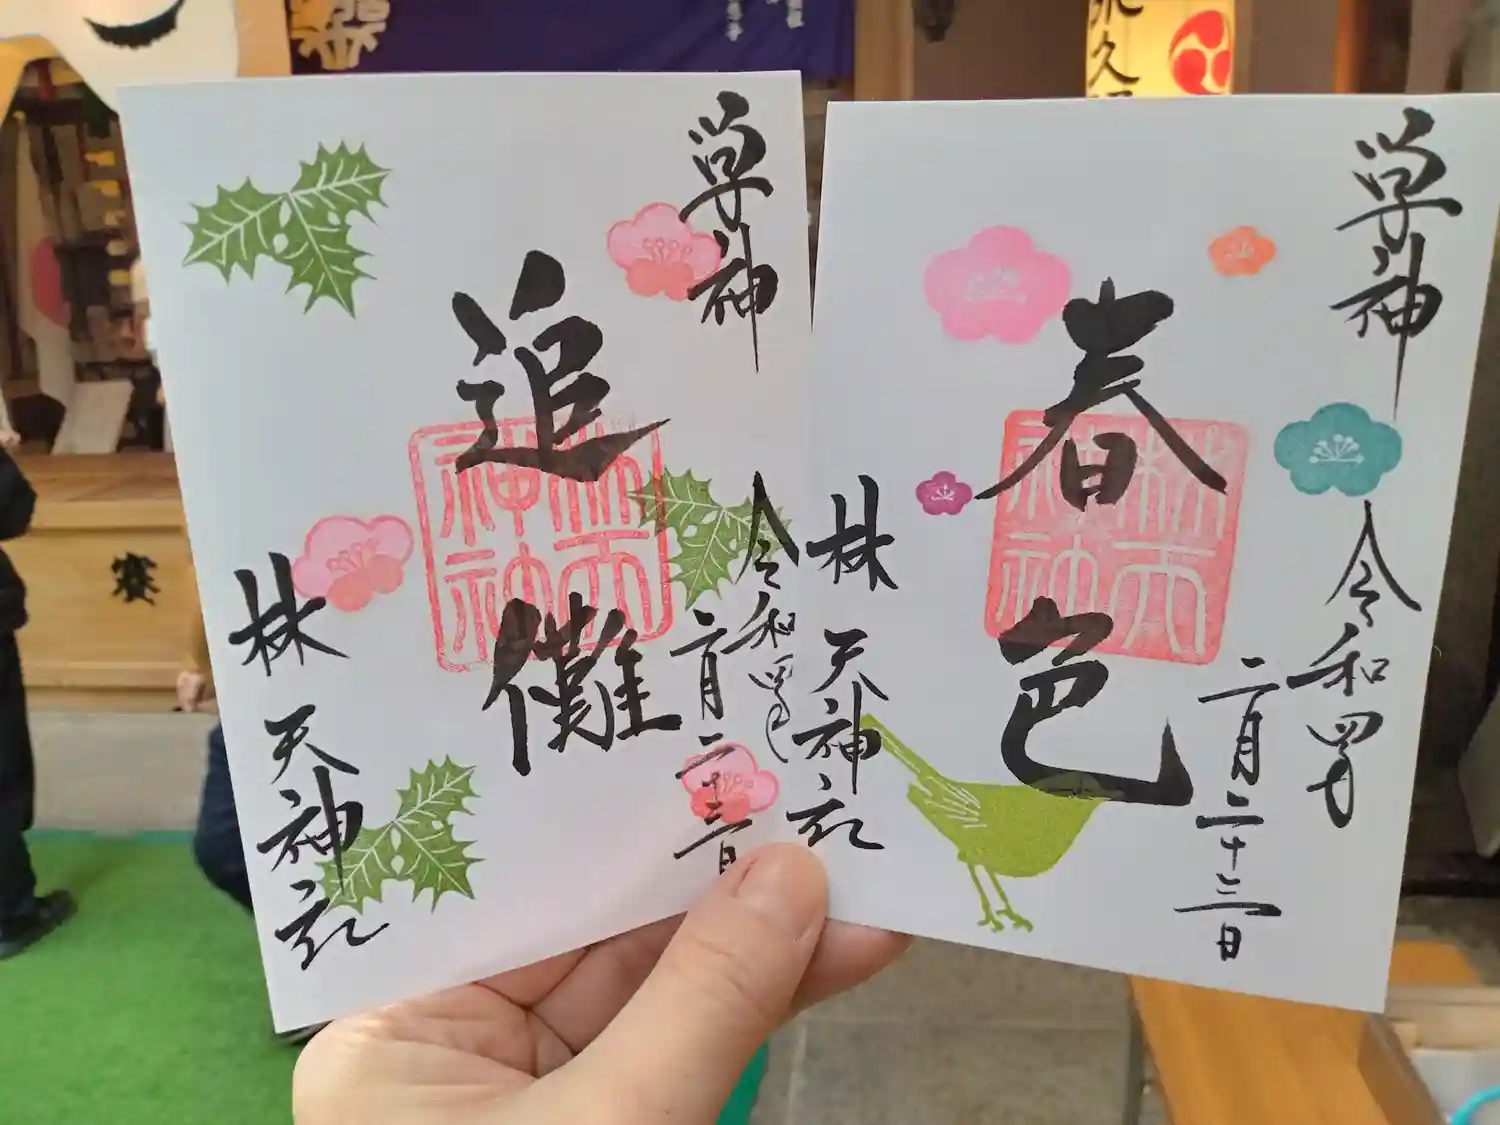 学神
追儺
令和四年
二月二十三日
桜
天神社
学神
春色
令和四年
二月二十三日
桜
天神社
永久
賽